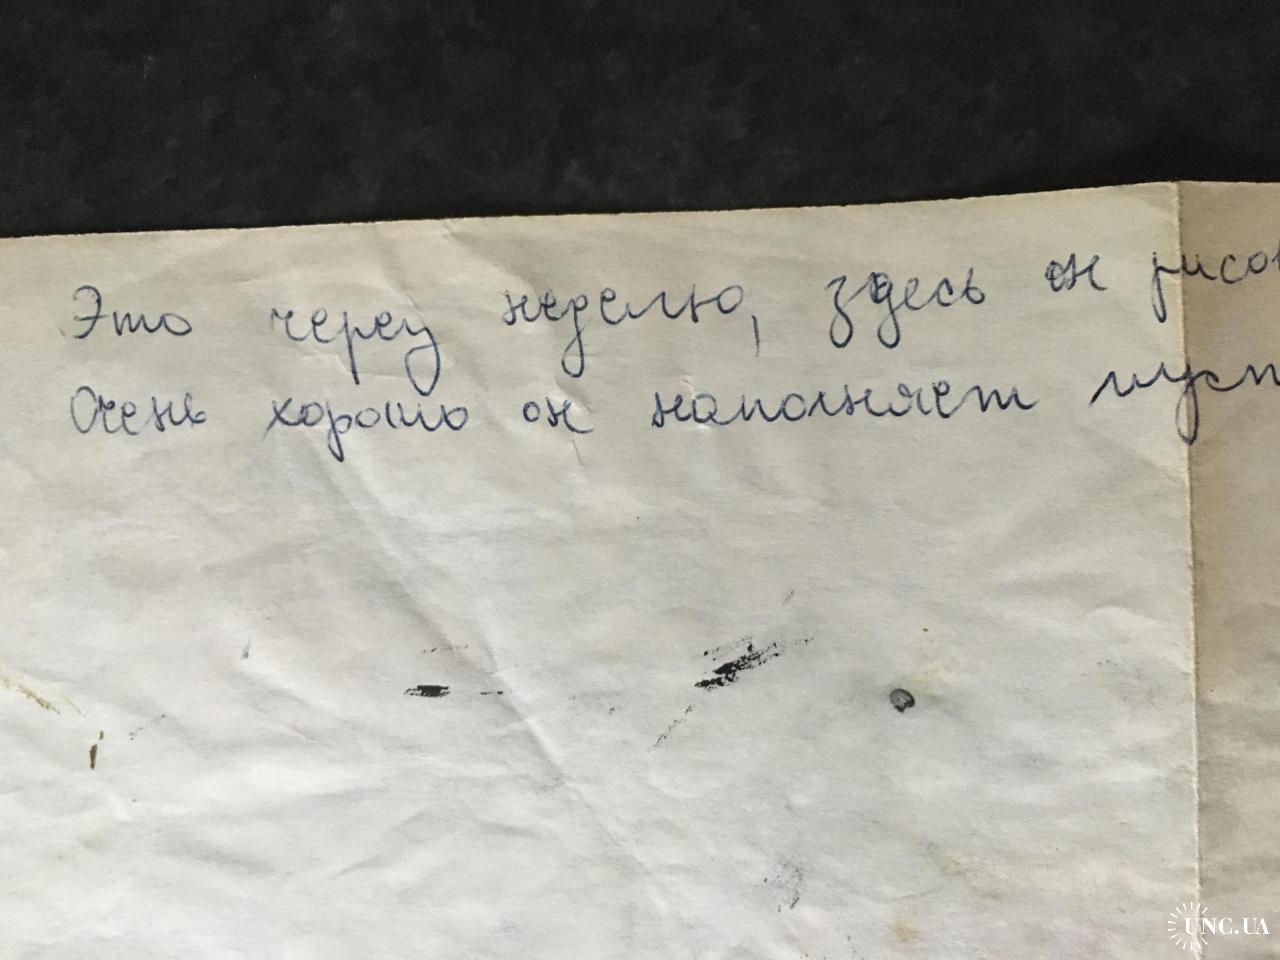 Это через неделю, здесь он рисов
Очень хорошо он наполняет пуст
UNC.UA